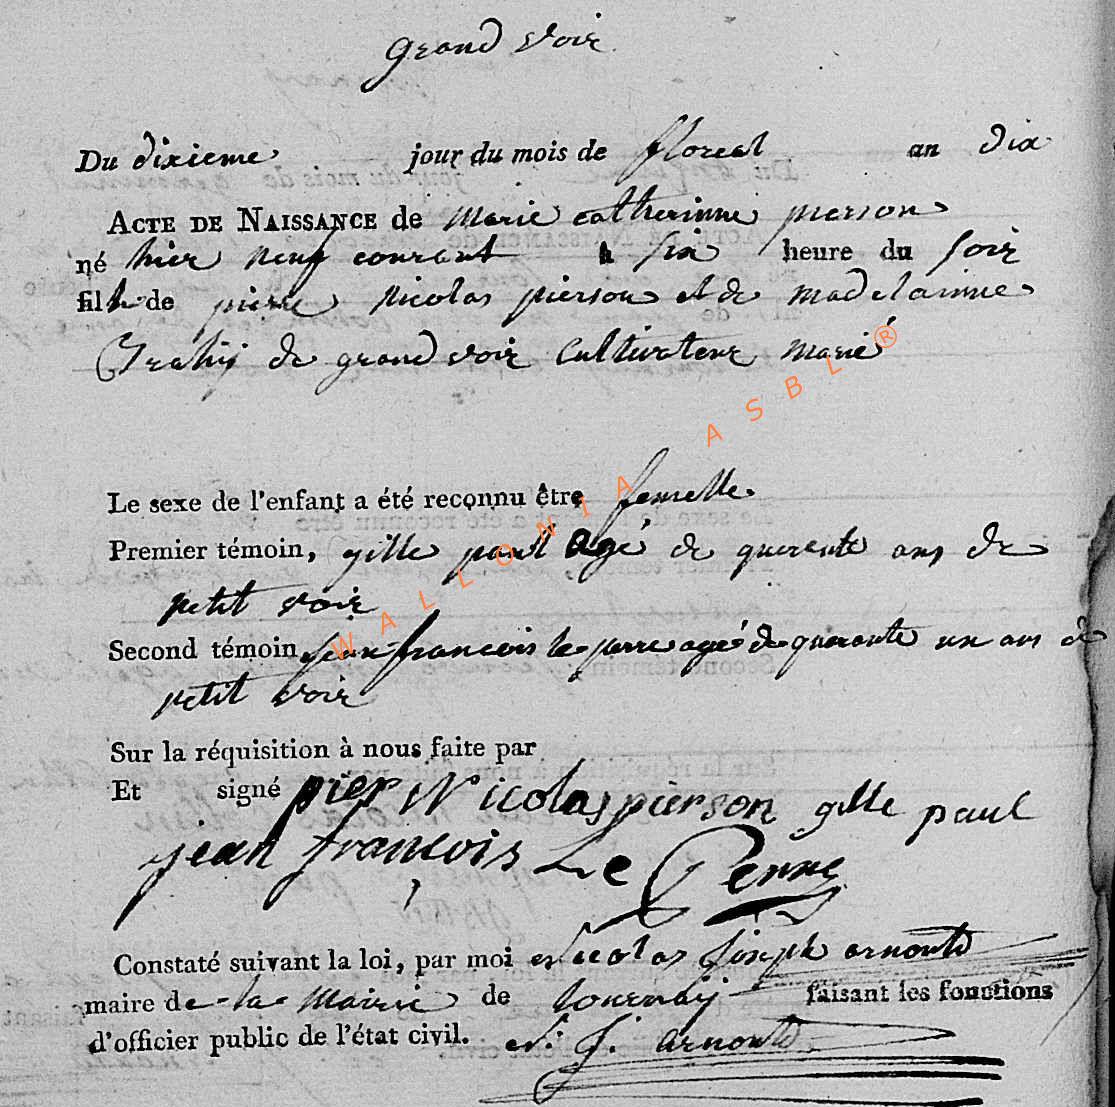 grand voir
Du dixieme jour du mois de floreal an dix
ACTE DE NAISSANCE de marie catherinne pierson
né hier neuf courant a six heure du soir
fille de pierre nicolas pierson et de madelainne
de grand voir cultivateur marié
Le sexe de l'enfant a été reconnu être femelle
Premier témoin, gille paul agé de querente ans de
petit voir
Second témoin jean francois le perre agé de querante un ans de
petit voir
Sur la réquisition à nous faite par
Et signé pier Nicolas pierson gille paul
jean françois Le
Constaté suivant la loi, par moi Nicolas Joseph arnould
maire de la Mairie de tournay faisant les fonctions
d'officier public de l'état civil. N. J. arnould
WALLONIA ASBL ®